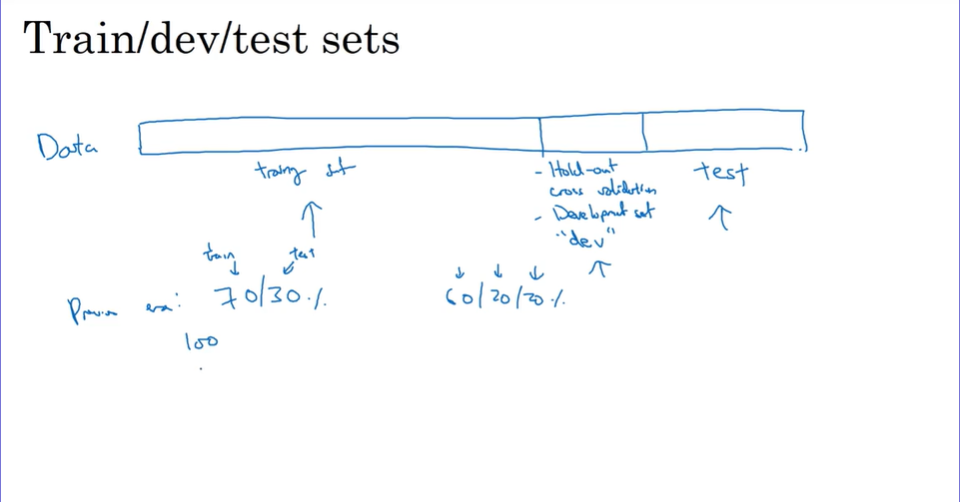 Train/dev/test sets
Data
training set
- Hold-out
cross validation
- Development set
"dev"
test
train
test
Previous era:
70/30%
60/20/20%
100